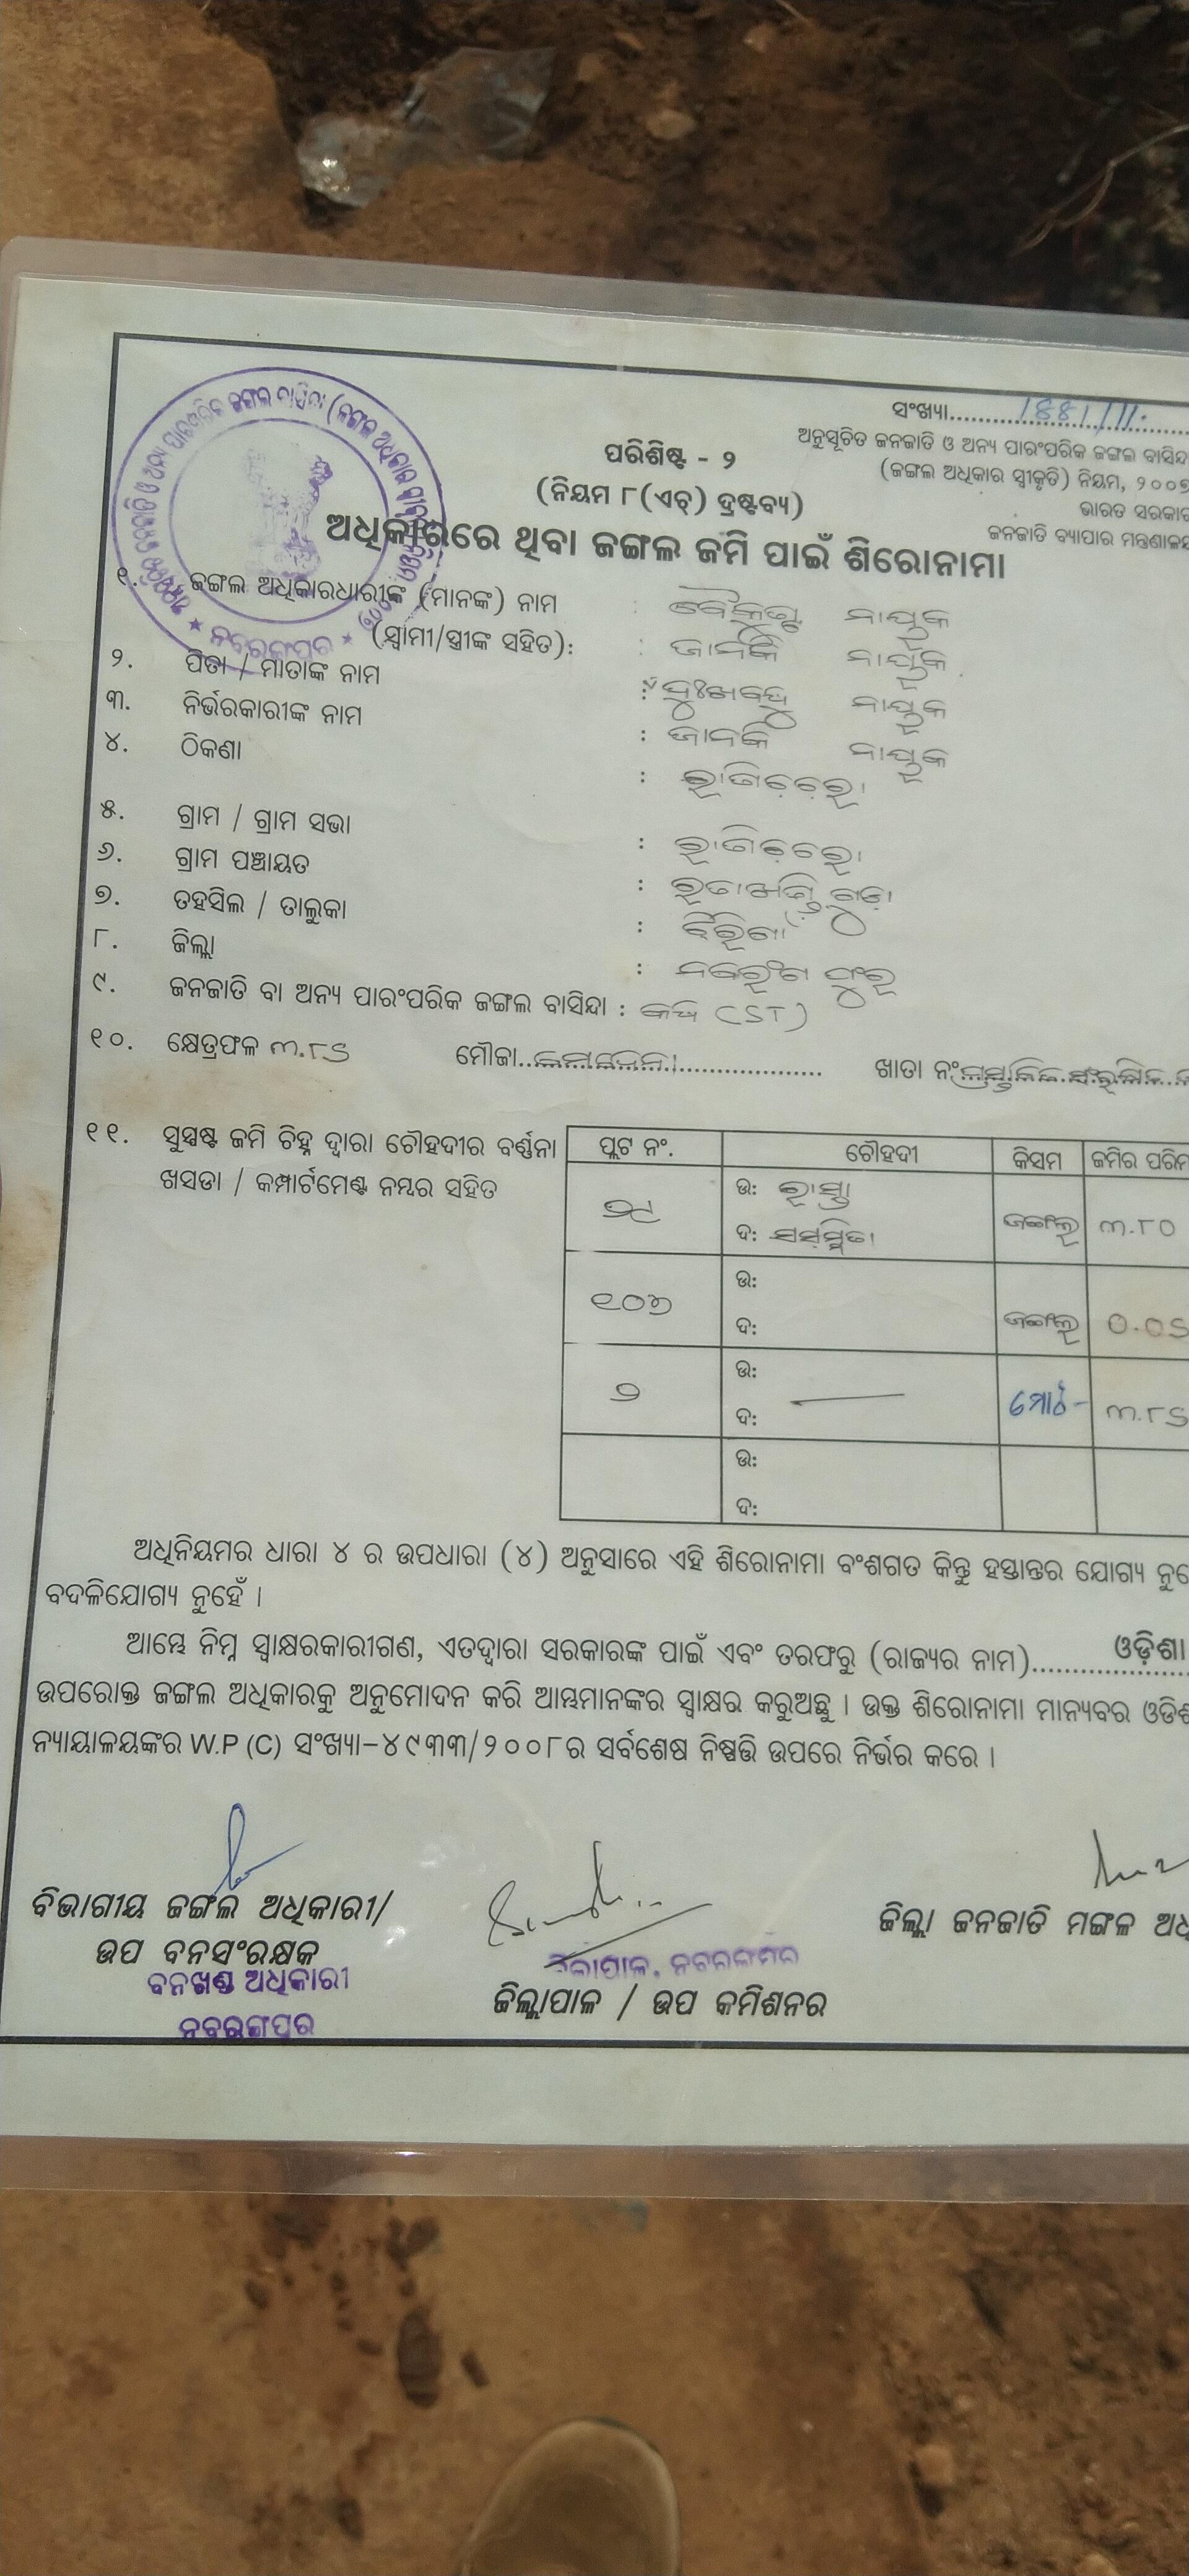 ସଂଖ୍ୟା
ଅନୁସୂଚିତ ଜନଜାତି ଓ ଅନ୍ୟ ପାରଂପରିକ ଜଙ୍ଗଲ ବାସିନ୍ଦା
ପରିଶିଷ୍ଟ - ୨
(ଜଙ୍ଗଲ ଅଧିକାର ସ୍ୱୀକୃତି) ନିୟମ, ୨୦୦୭
(ନିୟମ ୮(ଏଚ୍) ଦ୍ରଷ୍ଟବ୍ୟ)
ଭାରତ ସରକାର
ଜନଜାତି ବ୍ୟାପାର ମନ୍ତ୍ରଣାଳୟ
ଅଧିକାରରେ ଥିବା ଜଙ୍ଗଲ ଜମି ପାଇଁ ଶିରୋନାମା
୧. ଜଙ୍ଗଲ ଅଧିକାରଧାରୀଙ୍କ (ମାନଙ୍କ) ନାମ : ବୈକୁଣ୍ଠ ନାୟକ
(ସ୍ୱାମୀ/ସ୍ତ୍ରୀଙ୍କ ସହିତ): ଜାନକି ନାୟକ
୨. ପିତା / ମାତାଙ୍କ ନାମ : ନାୟକ
୩. ନିର୍ଭରକାରୀଙ୍କ ନାମ : ଜାନକି ନାୟକ
୪. ଠିକଣା :
୫. ଗ୍ରାମ / ଗ୍ରାମ ସଭା :
୬. ଗ୍ରାମ ପଞ୍ଚାୟତ :
୭. ତହସିଲ / ତାଲୁକା : ଝରିଗାଁ
୮. ଜିଲ୍ଲା : ନବରଂଗ ପୁର
୯. ଜନଜାତି ବା ଅନ୍ୟ ପାରଂପରିକ ଜଙ୍ଗଲ ବାସିନ୍ଦା : (ST)
୧୦. କ୍ଷେତ୍ରଫଳ ୩.୮୫ ମୌଜା ଖାତା ନଂ
୧୧. ସୁସ୍ପଷ୍ଟ ଜମି ଚିହ୍ନ ଦ୍ୱାରା ଚୌହଦୀର ବର୍ଣ୍ଣନା
ଖସଡା / କମ୍ପାର୍ଟମେଣ୍ଟ ନମ୍ବର ସହିତ
ପ୍ଲଟ ନଂ. ଚୌହଦୀ କିସମ ଜମିର
୨୯ ଉ: ରାସ୍ତା ଜଙ୍ଗଲ ୩.୮୦
ଦ:
୧୦୬ ଉ: ଜଙ୍ଗଲ ୦.୦୫
ଦ:
୨ ଉ: ମୋଠ- ୩.୮୫
ଦ:
ଉ:
ଦ:
ଅଧିନିୟମର ଧାରା ୪ ର ଉପଧାରା (୪) ଅନୁସାରେ ଏହି ଶିରୋନାମା ବଂଶଗତ କିନ୍ତୁ ହସ୍ତାନ୍ତର ଯୋଗ୍ୟ
ବଦଳିଯୋଗ୍ୟ ନୁହେଁ ।
ଆମ୍ଭେ ନିମ୍ନ ସ୍ୱାକ୍ଷରକାରୀଗଣ, ଏତଦ୍ୱାରା ସରକାରଙ୍କ ପାଇଁ ଏବଂ ତରଫରୁ (ରାଜ୍ୟର ନାମ) ଓଡ଼ିଶା
ଉପରୋକ୍ତ ଜଙ୍ଗଲ ଅଧିକାରକୁ ଅନୁମୋଦନ କରି ଆମ୍ଭମାନଙ୍କର ସ୍ୱାକ୍ଷର କରୁଅଛୁ । ଉକ୍ତ ଶିରୋନାମା ମାନ୍ୟବର
ନ୍ୟାୟାଳୟଙ୍କର W.P (C) ସଂଖ୍ୟା-୪୯୩୩/୨୦୦୮ର ସର୍ବଶେଷ ନିଷ୍ପତ୍ତି ଉପରେ ନିର୍ଭର କରେ ।
ବିଭାଗୀୟ ଜଙ୍ଗଲ ଅଧିକାରୀ/
ଉପ ବନସଂରକ୍ଷକ
ବନଖଣ୍ଡ ଅଧିକାରୀ
ନବରଙ୍ଗପୁର
ଜିଲ୍ଲାପାଳ / ଉପ କମିଶନର
ଜିଲ୍ଲା ଜନଜାତି ମଙ୍ଗଳ